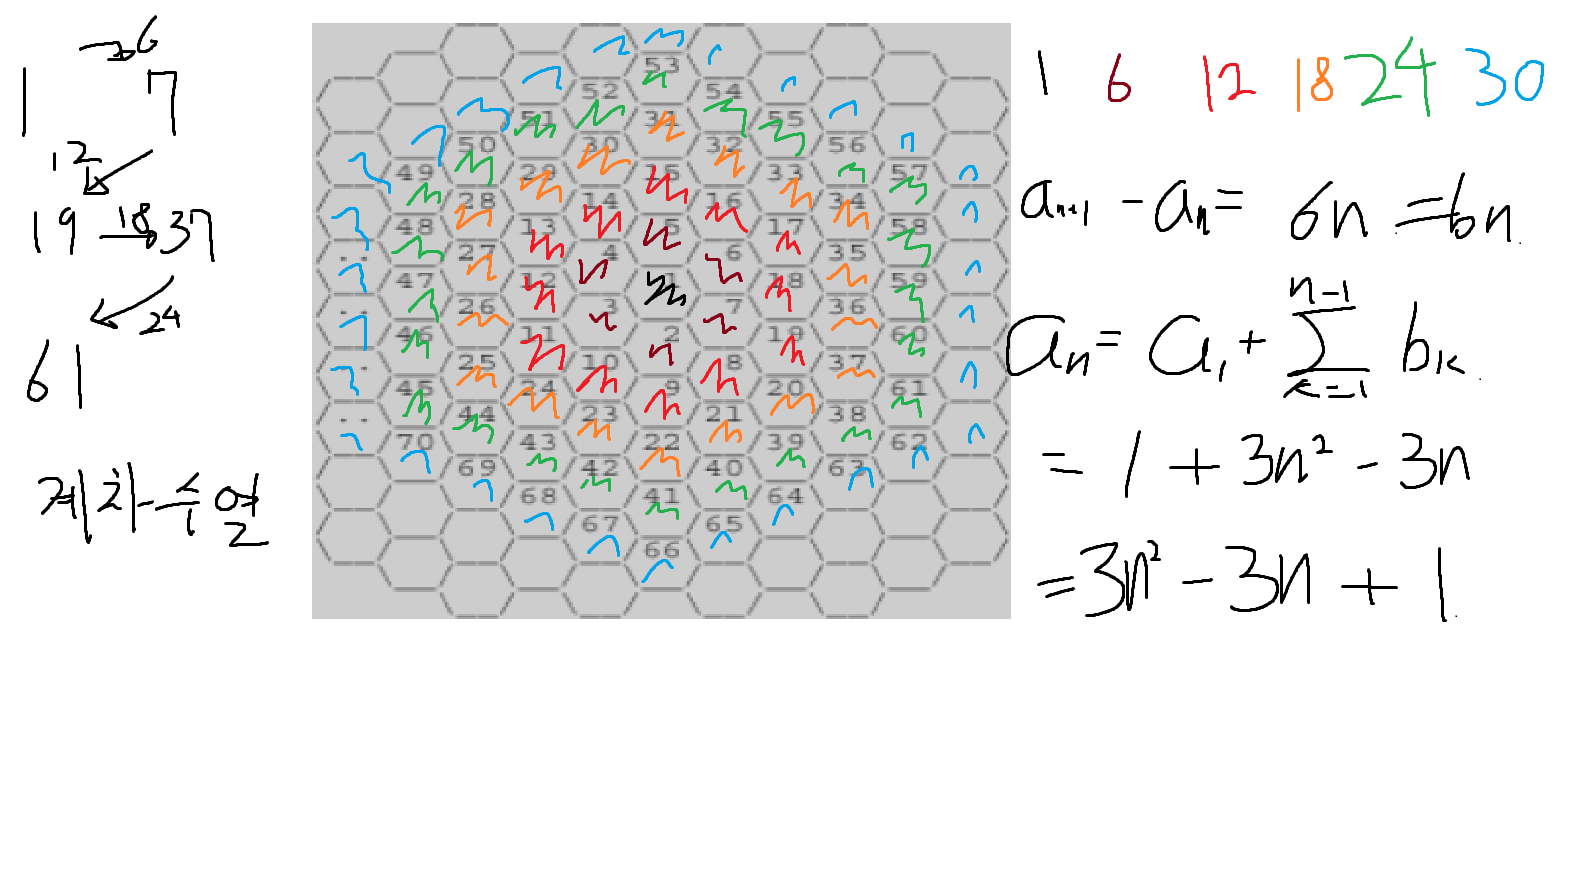 →6
1 7
12
19 18 37
24
61
계차수열
53
52 54
51 31 55
50 30 32 56
49 29 15 33 57
28 14 16 34
48 13 5 17 58
.. 27 4 6 35
47 12 1 18 59
.. 26 3 7 36
46 11 2 19 60
. 25 10 8 37
45 24 9 20 61
.. 44 23 21 38
70 43 22 39 62
69 42 40 63
68 41 64
67 65
66
1 6 12 18 24 30
aₙ₊₁ - aₙ = 6n = bn
aₙ = a₁ + ∑ₖ₌₁ⁿ⁻¹ bₖ
= 1 + 3n² - 3n
= 3n² - 3n + 1